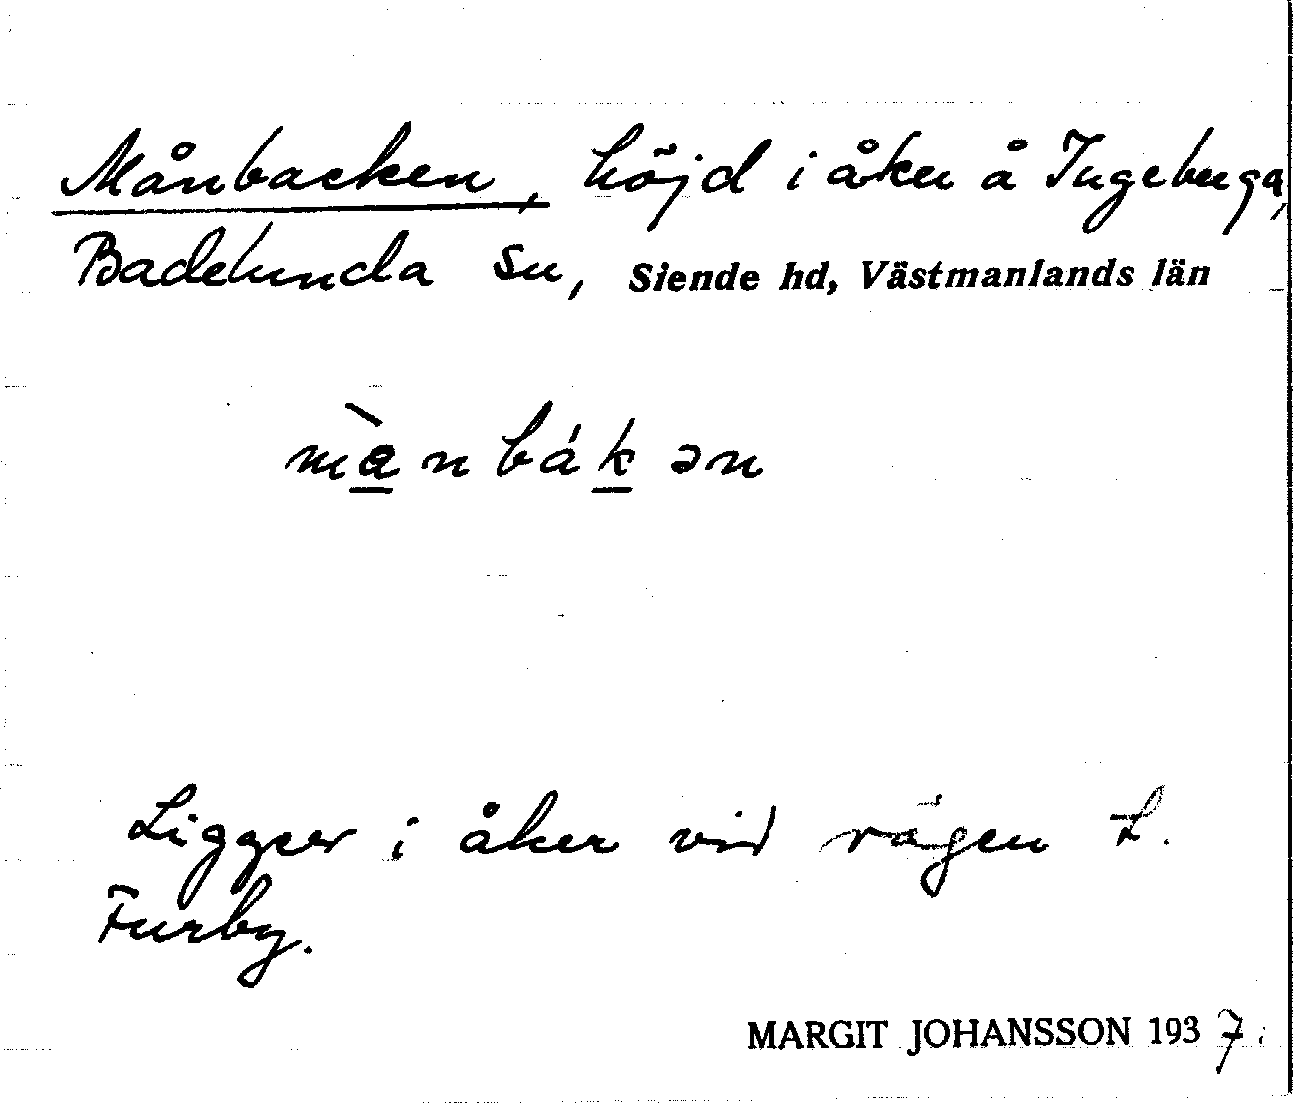 Månbacken, höjd i åker å Ingeberga,
Badelunda sn, Siende hd, Västmanlands län
mànbákən
Ligger i åker vid vägen t.
Furby.
MARGIT JOHANSSON 1937.